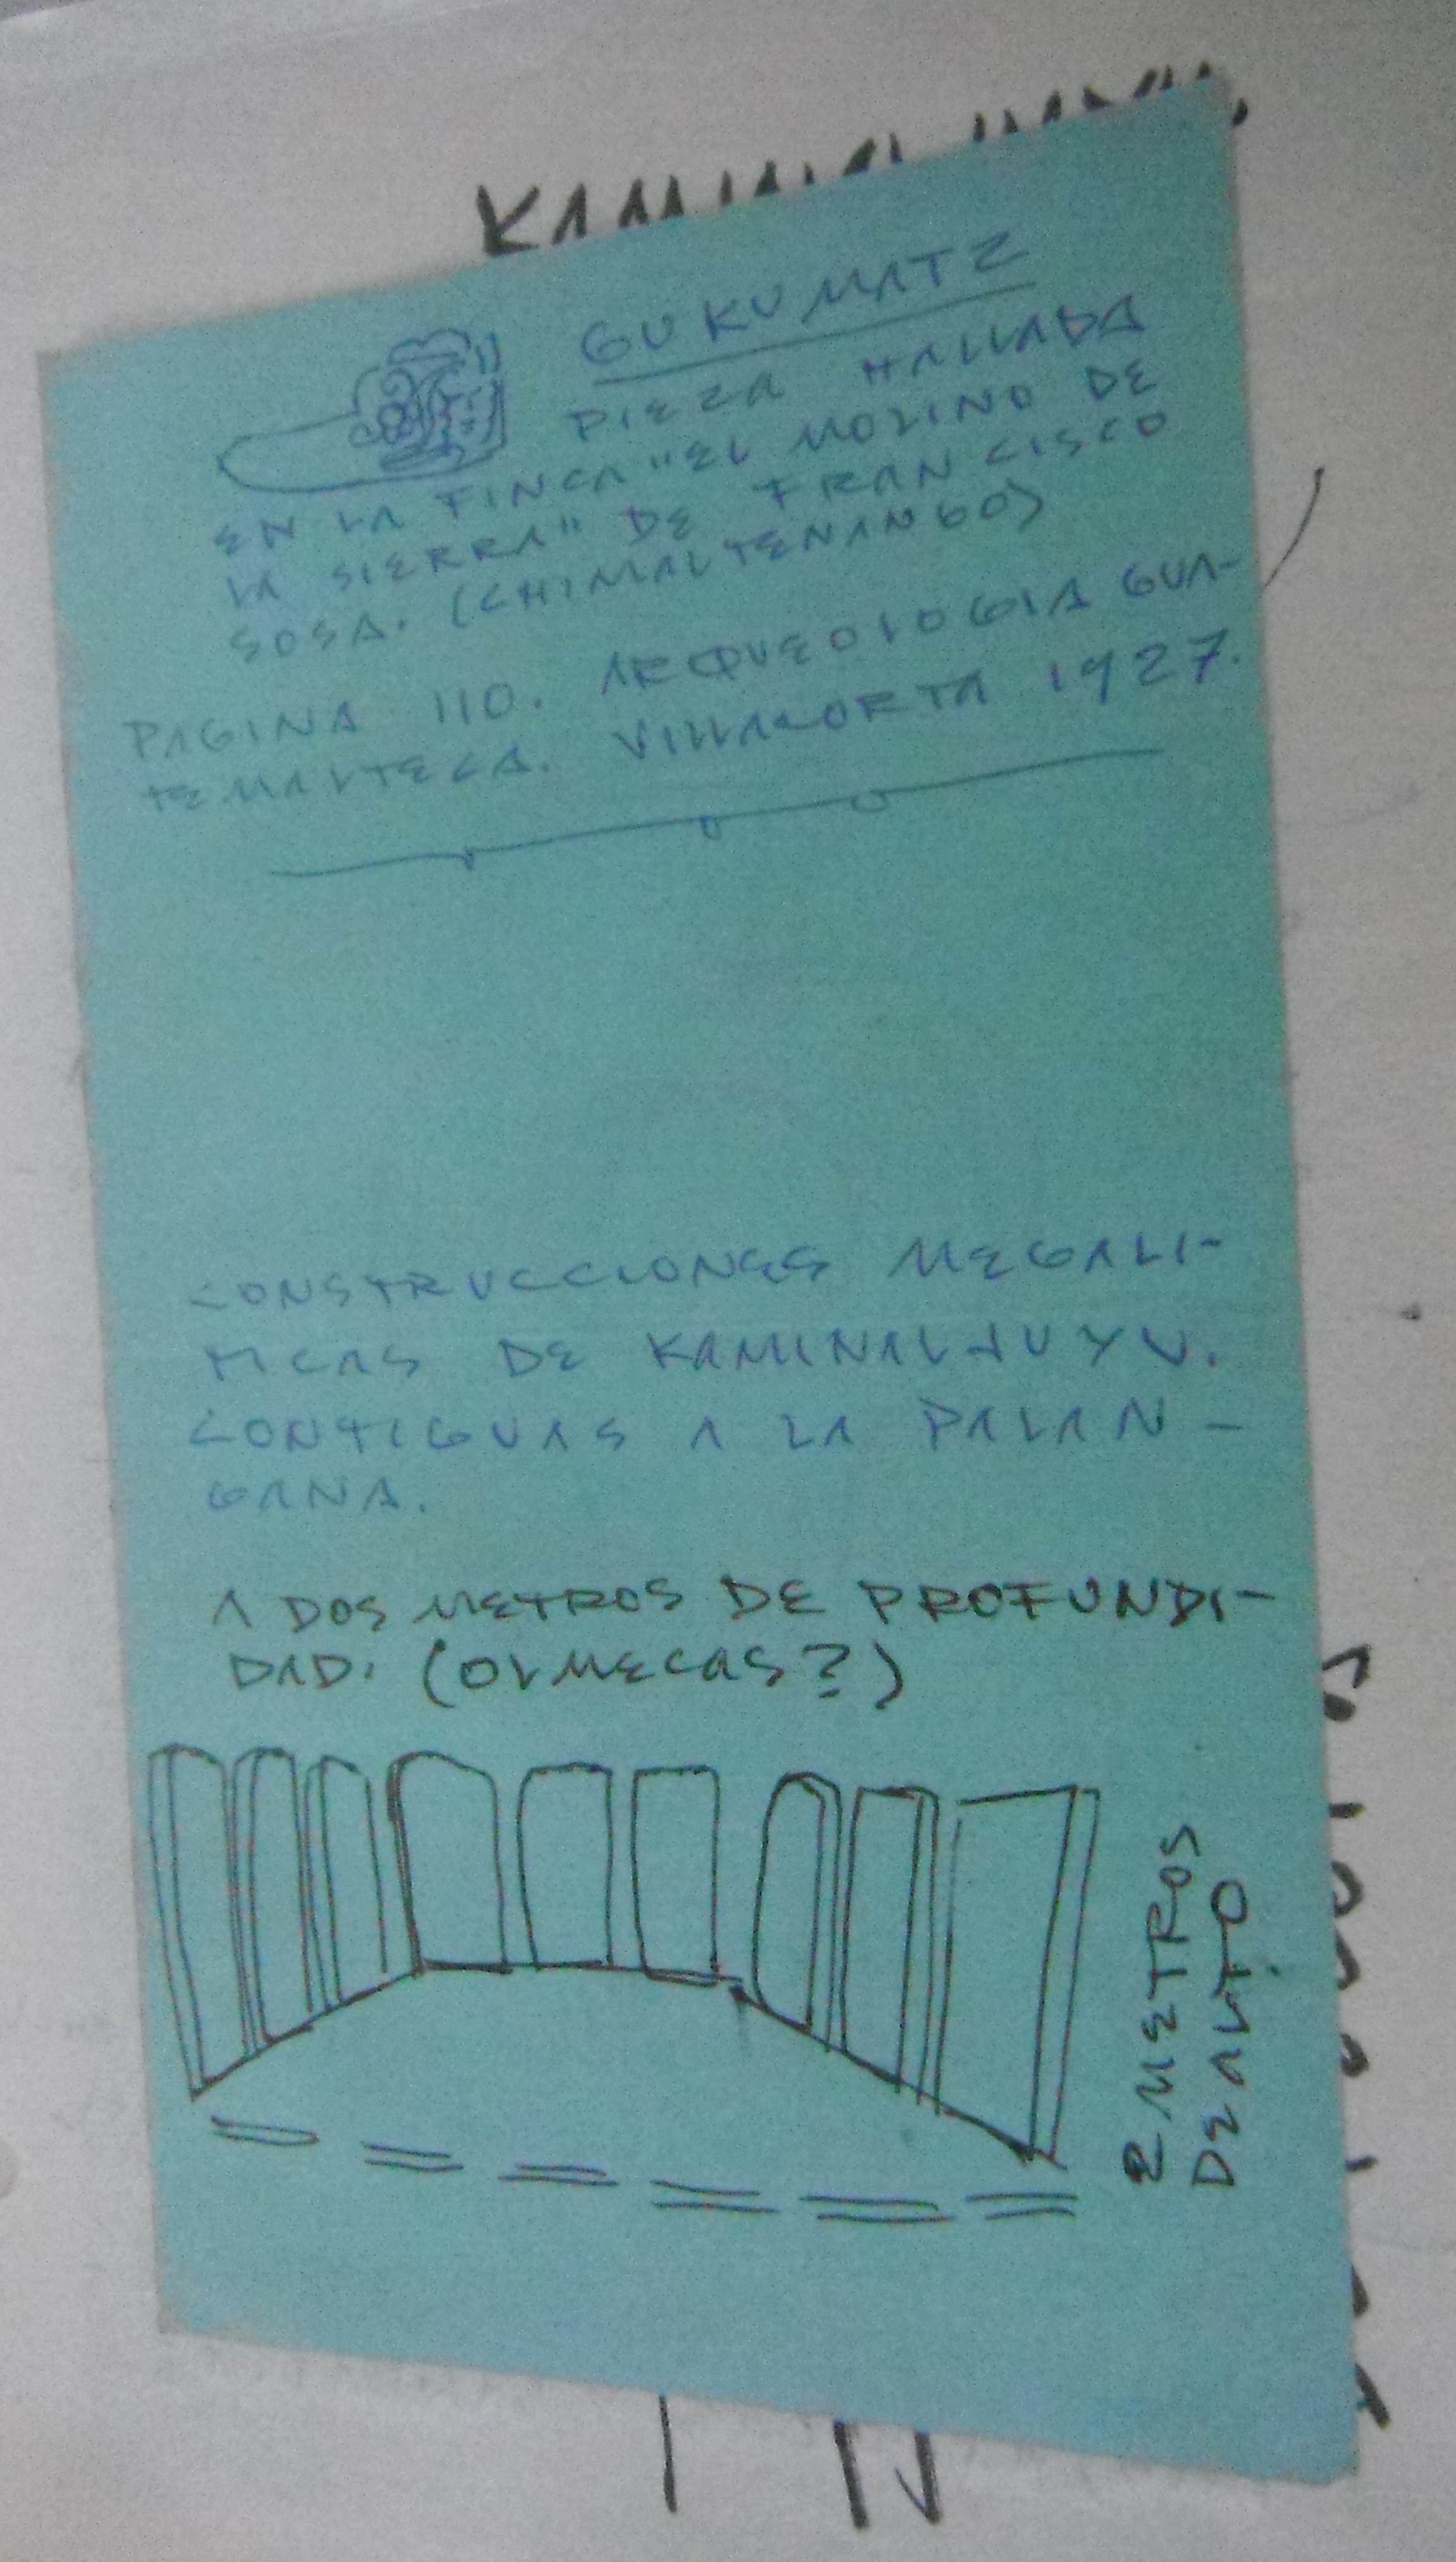 GUKUMATZ
PIEZA HALLADA
EN LA FINCA "EL MOLINO DE
LA SIERRA" DE FRANCISCO
SOSA. (CHIMALTENANGO)
PAGINA 110. ARQUEOLOGIA GUA-
TEMALTECA. VILLACORTA 1927.
CONSTRUCCIONES MEGALI-
TICAS DE KAMINALJUYU.
CONTIGUAS A LA PALAN-
GANA.
A DOS METROS DE PROFUNDI-
DAD. (OLMECAS?)
2 METROS
DE ALTO